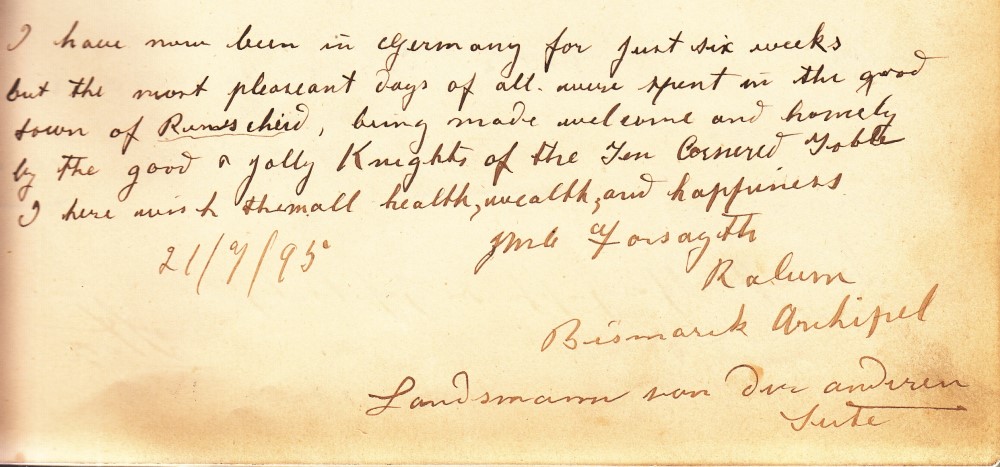 I have now been in Germany for just six weeks
but the most pleasant days of all were spent in the good
town of Remscheid, being made welcome and homely
by the good & jolly Knights of the Ten Cornered Table
I here wish them all health, wealth, and happiness
21/7/95 Forsayth
Ralum
Bismark Archipel
Landsmann von der anderen
Seite